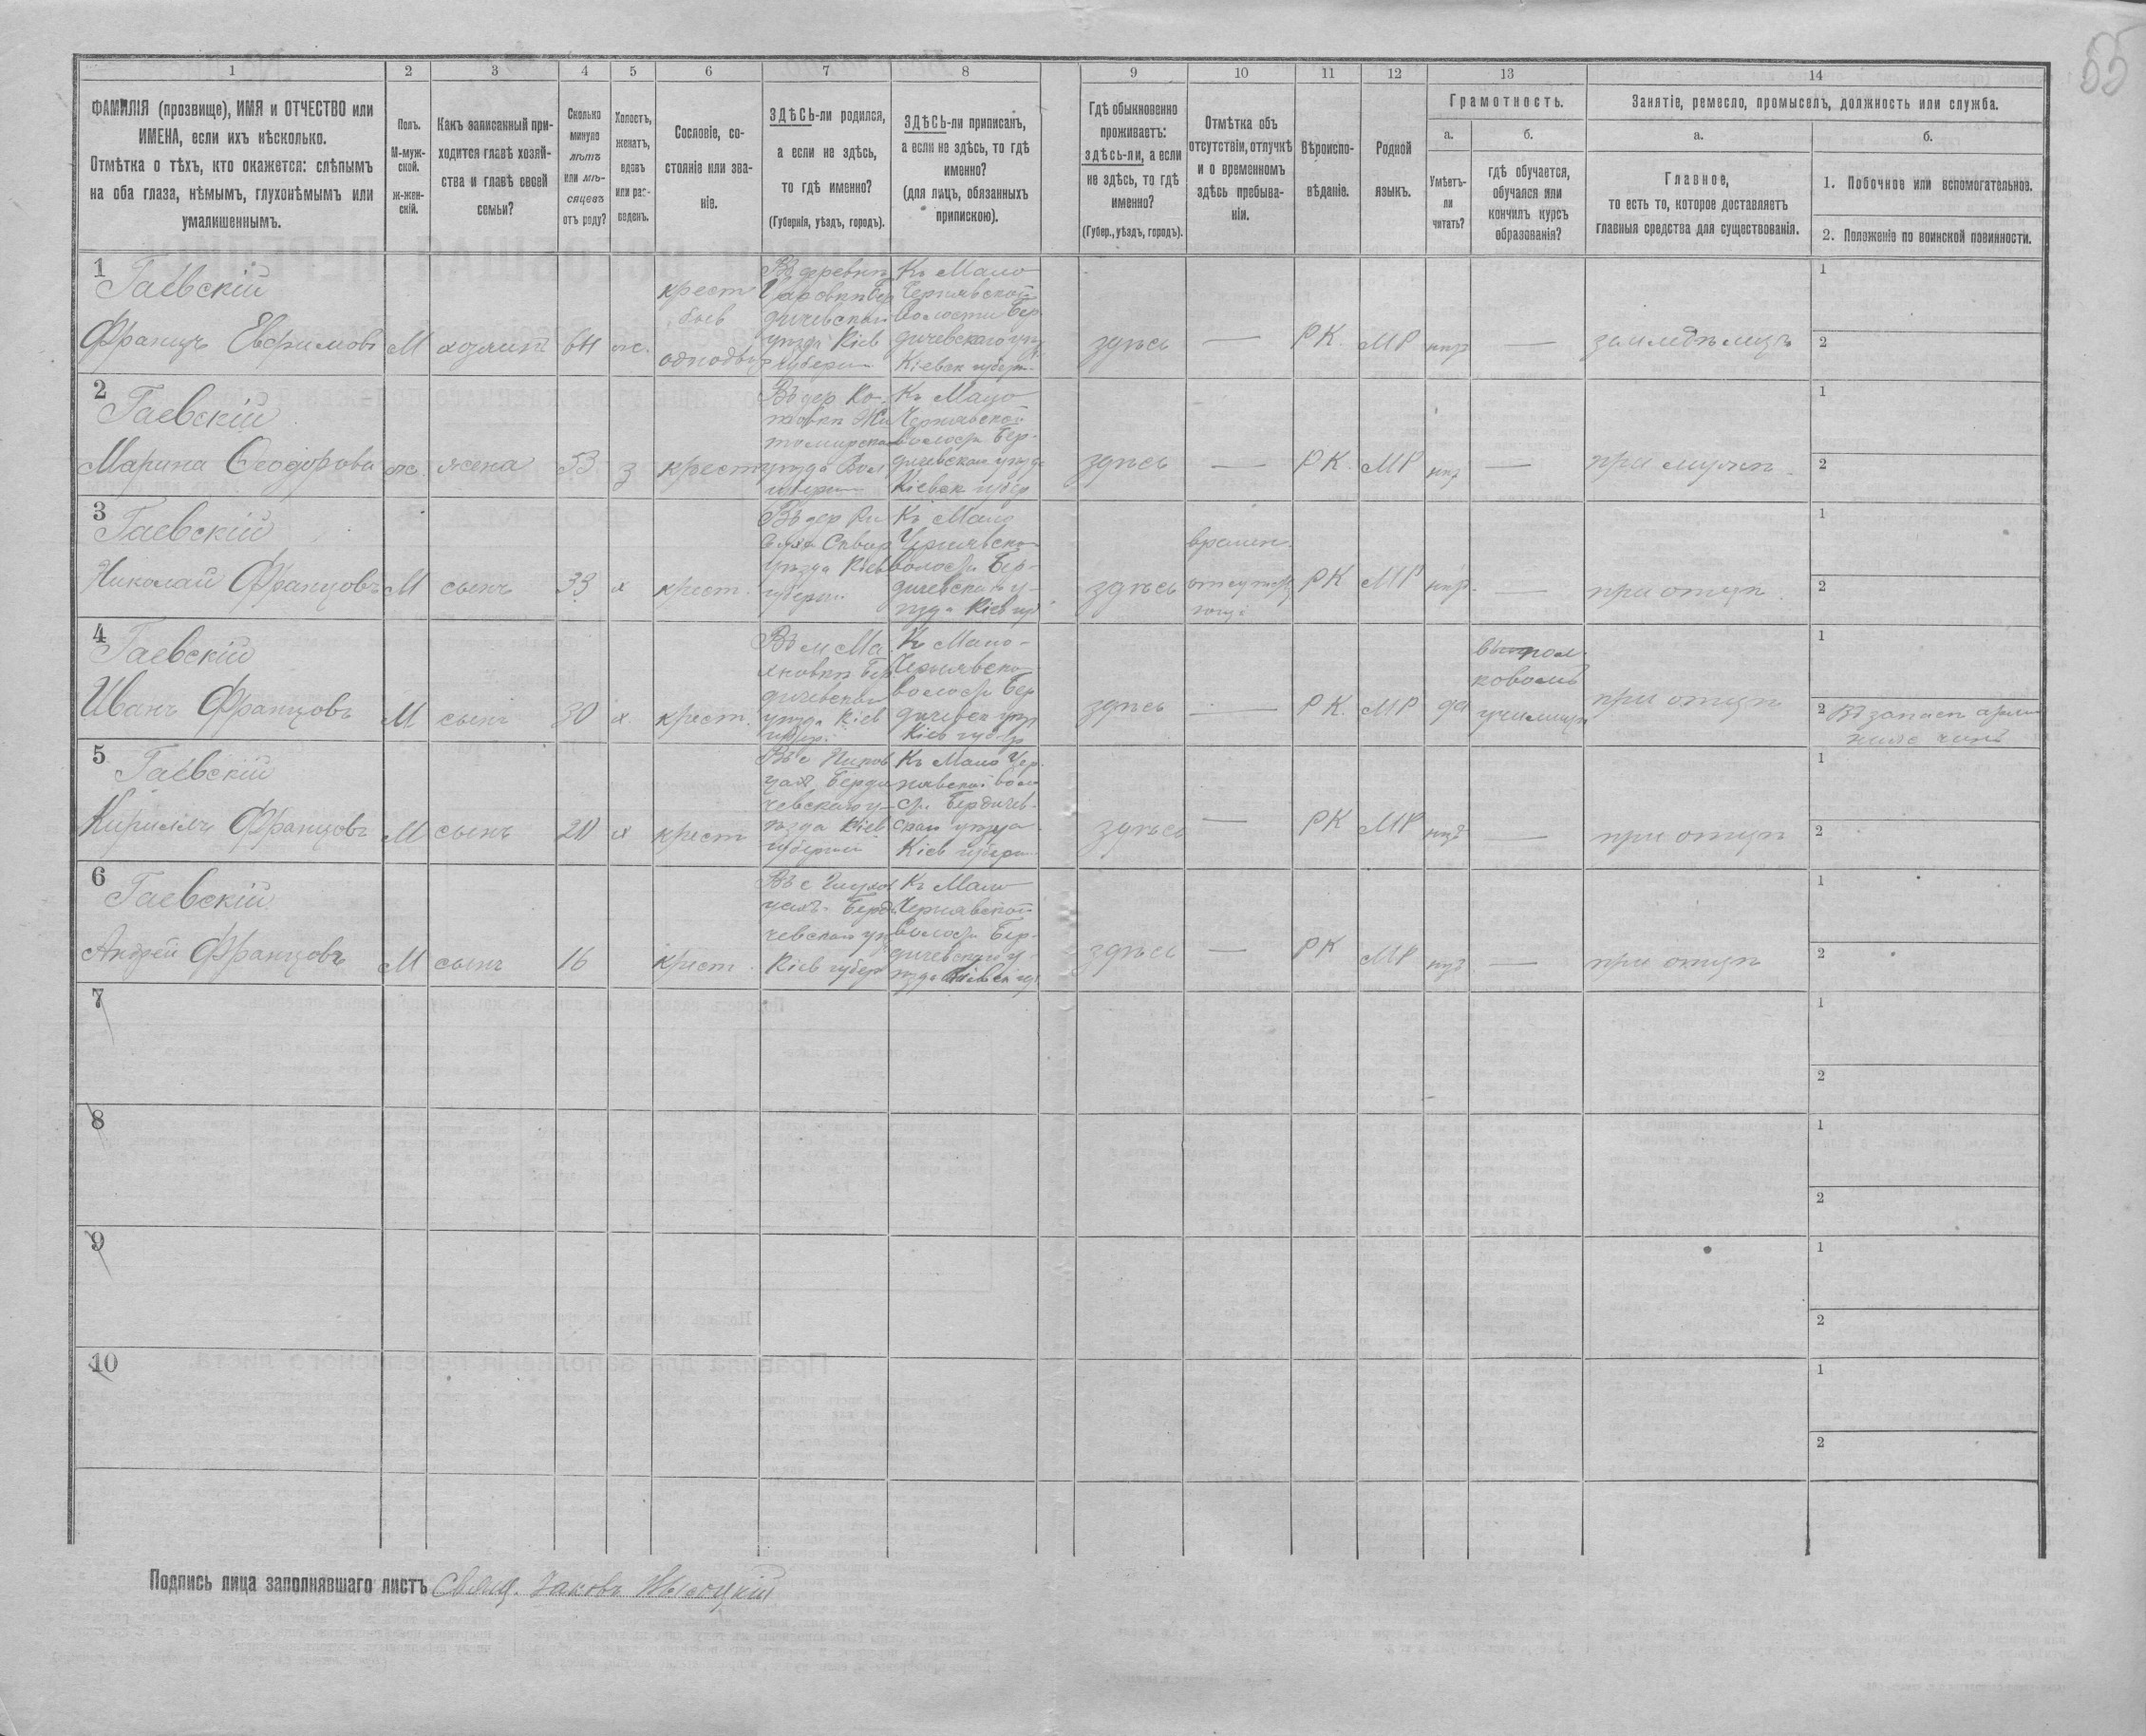 55
1
2
3
4
5
6
7
8
9
10
11
12
13
14
ФАМИЛІЯ (прозвище), ИМЯ и ОТЧЕСТВО или
ИМЕНА, если ихъ нѣсколько.
Отмѣтка о тѣхъ, кто окажется: слѣпымъ
на оба глаза, нѣмымъ, глухонѣмымъ или
умалишеннымъ.
Полъ.
М-муж-
ской.
ж-жен-
скій.
Какъ записанный при-
ходится главѣ хозяй-
ства и главѣ своей
семьи?
Сколько
минуло
лѣтъ
или мѣ-
сяцевъ
отъ роду?
Холостъ,
женатъ,
вдовъ
или раз-
веденъ.
Сословіе, со-
стояніе или зва-
ніе.
ЗДѢСЬ-ли родился,
а если не здѣсь,
то гдѣ именно?
(Губернія, уѣздъ, городъ).
ЗДѢСЬ-ли приписанъ,
а если не здѣсь, то гдѣ
именно?
(для лицъ, обязанныхъ
припискою).
Гдѣ обыкновенно
проживаетъ:
здѣсь-ли, а если
не здѣсь, то гдѣ
именно?
(Губер., уѣздъ, городъ).
Отмѣтка объ
отсутствіи, отлучкѣ
и о временномъ
здѣсь пребыва-
ніи.
Вѣроиспо-
вѣданіе.
Родной
языкъ.
Грамотность.
а.
б.
Умѣетъ-
ли
читать?
гдѣ обучается,
обучался или
кончилъ курсъ
образованія?
Занятіе, ремесло, промыселъ, должность или служба.
а.
б.
Главное,
то есть то, которое доставляетъ
главныя средства для существованія.
1. Побочное или вспомогательное.
2. Положеніе по воинской повинности.
1
Гаевскій
Францъ Евфимовъ
М
хозяинъ
64
ж.
крест
бывъ
однодвор
Въ деревнѣ
дичевскаго
уѣзда Кіев
губерніи
Къ Мало
Чернявской
волости Бер
дичевскаго уѣз
Кіевск губерн
здѣсь
—
РК.
МР
нѣт
—
земледѣлецъ
1
2
2
Гаевскій
Марина Ѳеодорова
ж.
жена
53
з
крест
Въ дер Ко-
товкѣ Жи
томирскаго
уѣзда Вол
губерніи
Къ Мало
Чернявской
волости Бер-
дичевскаго уѣзда
Кіевск губер
здѣсь
—
РК.
МР
нѣт
—
при мужѣ
1
2
3
Гаевскій
Николай Францовъ
М
сынъ
33
х
крест.
Въ дер
Сквир
уѣзда Кіев
губерніи
Къ Мало
Чернявско
волости Бер-
дичевскаго у-
ѣзда Кіев губ
здѣсь
времен
отсутств
РК
МР
нѣт
—
при отцѣ
1
2
4
Гаевскій
Иванъ Францовъ
М
сынъ
30
х.
крест.
Въ м Ма
хновкѣ Бер
дичевскаго
уѣзда Кіев
губер.
Къ Мало-
Чернявско
волости Бер
дичевск уѣз
Кіев губер
здѣсь
—
РК.
МР
да
въ пол
ковомъ
училищѣ
при отцѣ
1
2 Въ запасѣ арміи
ниж чинъ
5
Гаевскій
Кириллъ Францовъ
М
сынъ
20
х
крест
Въ с Пиков
цахъ Берди
чевскаго у-
ѣзда Кіев
губерніи
Къ Мало Чер
нявской воло
сти Бердичев-
скаго уѣзда
Кіев губерн
здѣсь
—
РК
МР
нѣт
—
при отцѣ
1
2
6
Гаевскій
Андрей Францовъ
М
сынъ
16
крест.
Въ с Глухов
цахъ Берди
чевскаго уѣз
Кіев губер
Къ Мало
Чернявской
волости Бер-
дичевскаго у-
ѣзда Кіевск губ
здѣсь
—
РК
МР
нѣт
—
при отцѣ
1
2
7
1
2
8
1
2
9
1
2
10
1
2
Подпись лица заполнявшаго листъ Свящ. Іаковъ Высоцкій